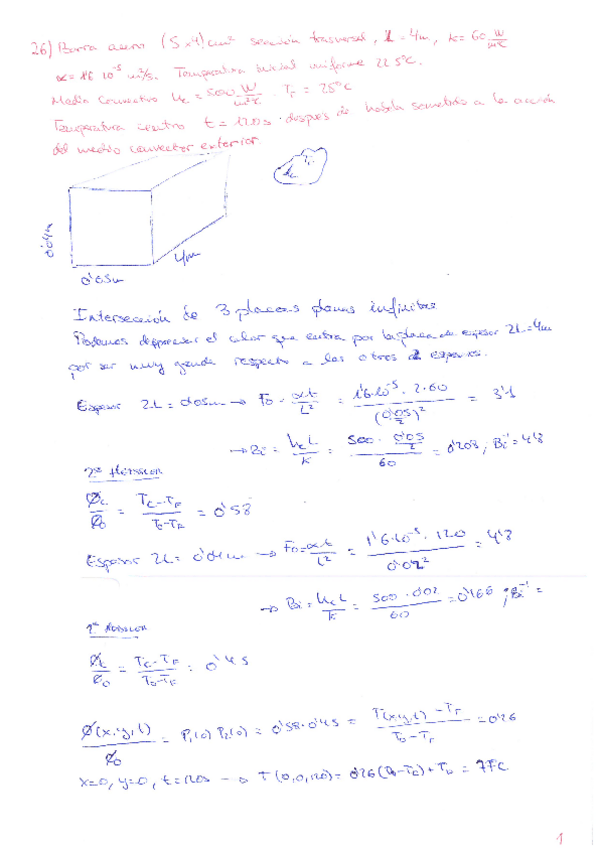 26) Barra acero (5x4)cm² sección trasversal, L = 4m, k = 60 W/m°C
α = 1'6 10⁻⁵ m²/s. Temperatura inicial uniforme 225°C.
Medio convectivo hc = 500 W/m²°C. TF = 25°C
Temperatura centro t = 120s. después de haberla sometido a la acción
del medio convector exterior.
hc TF
0'04m
4m
0'05m
Intersección de 3 placas planas infinitas
Podemos despreciar el calor que entra por la placa de espesor 2L=4m
por ser muy grande respecto a los otros 2 espesores.
Espesor 2L = 0'05m → Fo = α·t/L² = 1'6·10⁻⁵ · 2·60/(0'05/2)² = 3'1
→ Bi = hc L/k = 500 · 0'05/2 / 60 = 0'208 ; Bi⁻¹ = 4'8
1er Heissler
Øc/Øo = Tc-TF/To-TF = 0'58
Espesor 2L = 0'04m → Fo = α·t/L² = 1'6·10⁻⁵ · 120/0'02² = 4'8
→ Bi = hc L/k = 500 · 0'02/60 = 0'166 ; Bi⁻¹ =
1er Heissler
Øc/Øo = Tc-TF/To-TF = 0'45
Ø(x,y,t)/Øo = P1(0) P2(0) = 0'58·0'45 = T(x,y,t) - TF/To - TF = 0'26
x=0, y=0, t=120s → T(0,0,120) = 0'26(To-TF)+TF = 77°C
1